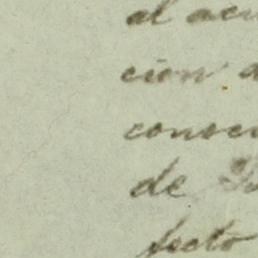 al acu
cion a
consec
de
fecto